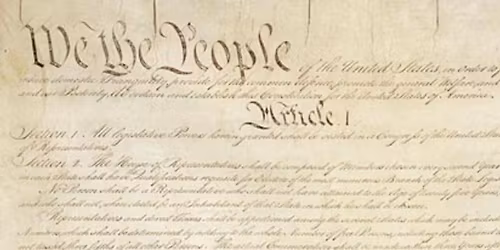 We the People of the United States, in Order to
insure domestic Tranquility, provide for the common defence, promote the general Welfare, and
and our Posterity, do ordain and establish this Constitution for the United States of America.
Article I
Section 1. All legislative Powers herein granted shall be vested in a Congress of the United States
of Representatives.
Section 2. The House of Representatives shall be composed of Members chosen every second Year
in each State shall have the Qualifications requisite for Electors of the most numerous Branch of the State Legis
No Person shall be a Representative who shall not have attained to the Age of twenty five Years
and who shall not, when elected, be an Inhabitant of that State in which he shall be chosen.
Representatives and direct Taxes shall be apportioned among the several States which may be included
Numbers, which shall be determined by adding to the whole Number of free Persons, including those bound
not taxed, three fifths of all other Persons. The actual Enumeration shall be made